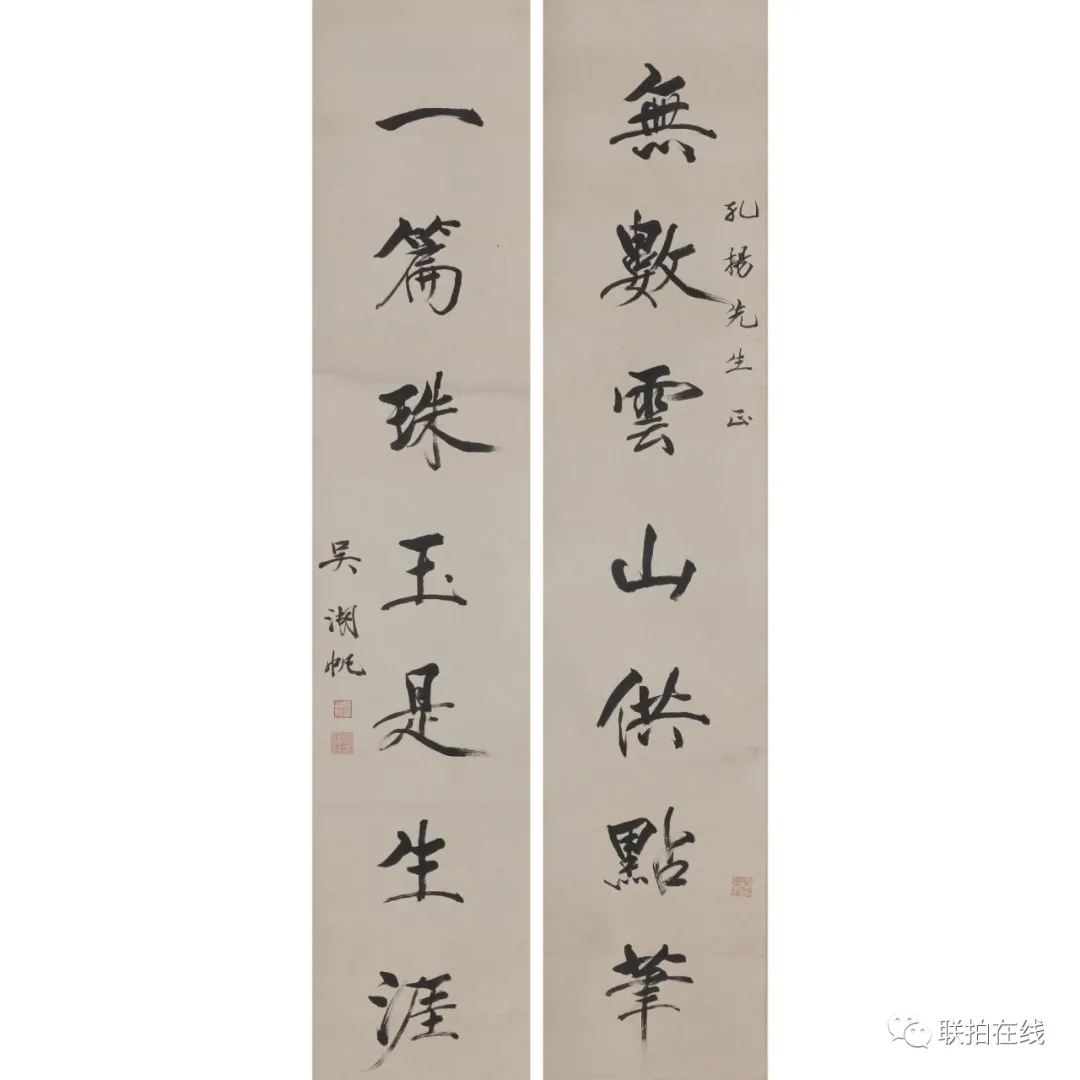 無數雲山供點筆
孔揚先生正
一篇珠玉是生涯
吳湖帆
联拍在线